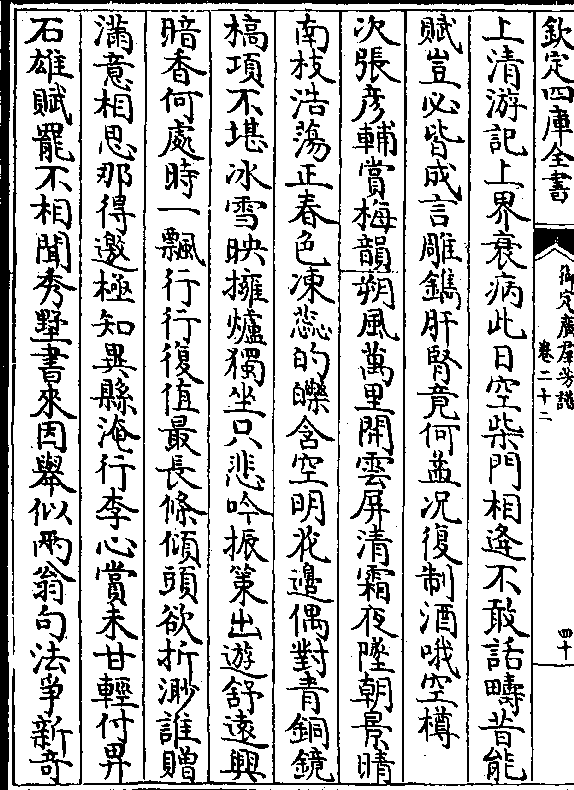 欽定四庫全書
御定廣羣芳譜
卷二十二
四十
上清游記上界衰病此日空柴門相逢不敢話疇昔能
賦豈必皆成言雕鐫肝腎竟何益况復制酒哦空樽
次張彦輔賞梅韻朔風萬里開雲屏清霜夜墜朝景晴
南枝浩蕩正春色凍蘂的皪含空明花邊偶對青銅鏡
槁項不堪冰雪映擁爐獨坐只悲吟振策出遊舒遠興
暗香何處時一飄行行復值最長條傾頭欲折渺誰贈
滿意相思那得邀極知異縣淹行李心賞未甘輕付畀
石雄賦罷不相聞秀墅書來因舉似兩翁句法爭新奇